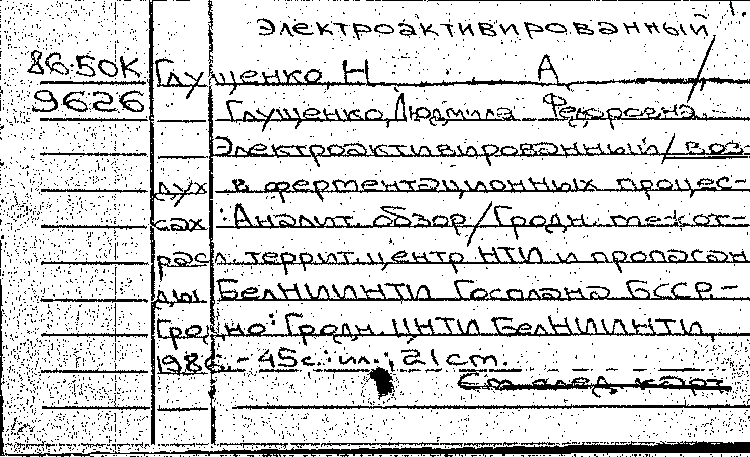 1.
Электроактивированный
86-50К Глущенко, Н А
9626 Глущенко, Людмила Федоровна.
Электроактивированный / воз-
дух в ферментационных процес-
сах : Аналит. обзор / Гродн. межот-
расл. террит. центр НТИ и пропаган
ды БелНИИНТИ Госплана БССР. -
Гродно : Гродн. ЦНТИ БелНИИНТИ,
1986. - 45 с. : ил. ; 21 см.
См след. карт